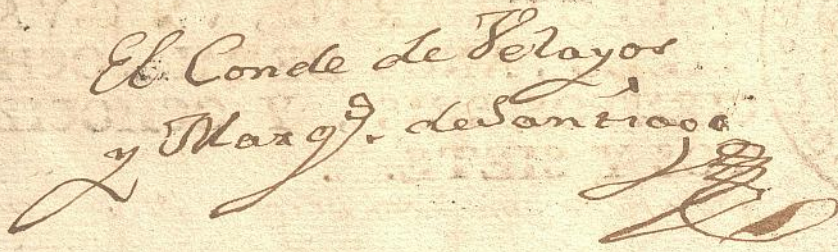 El Conde de Velayos
y Marq.s de Santiago